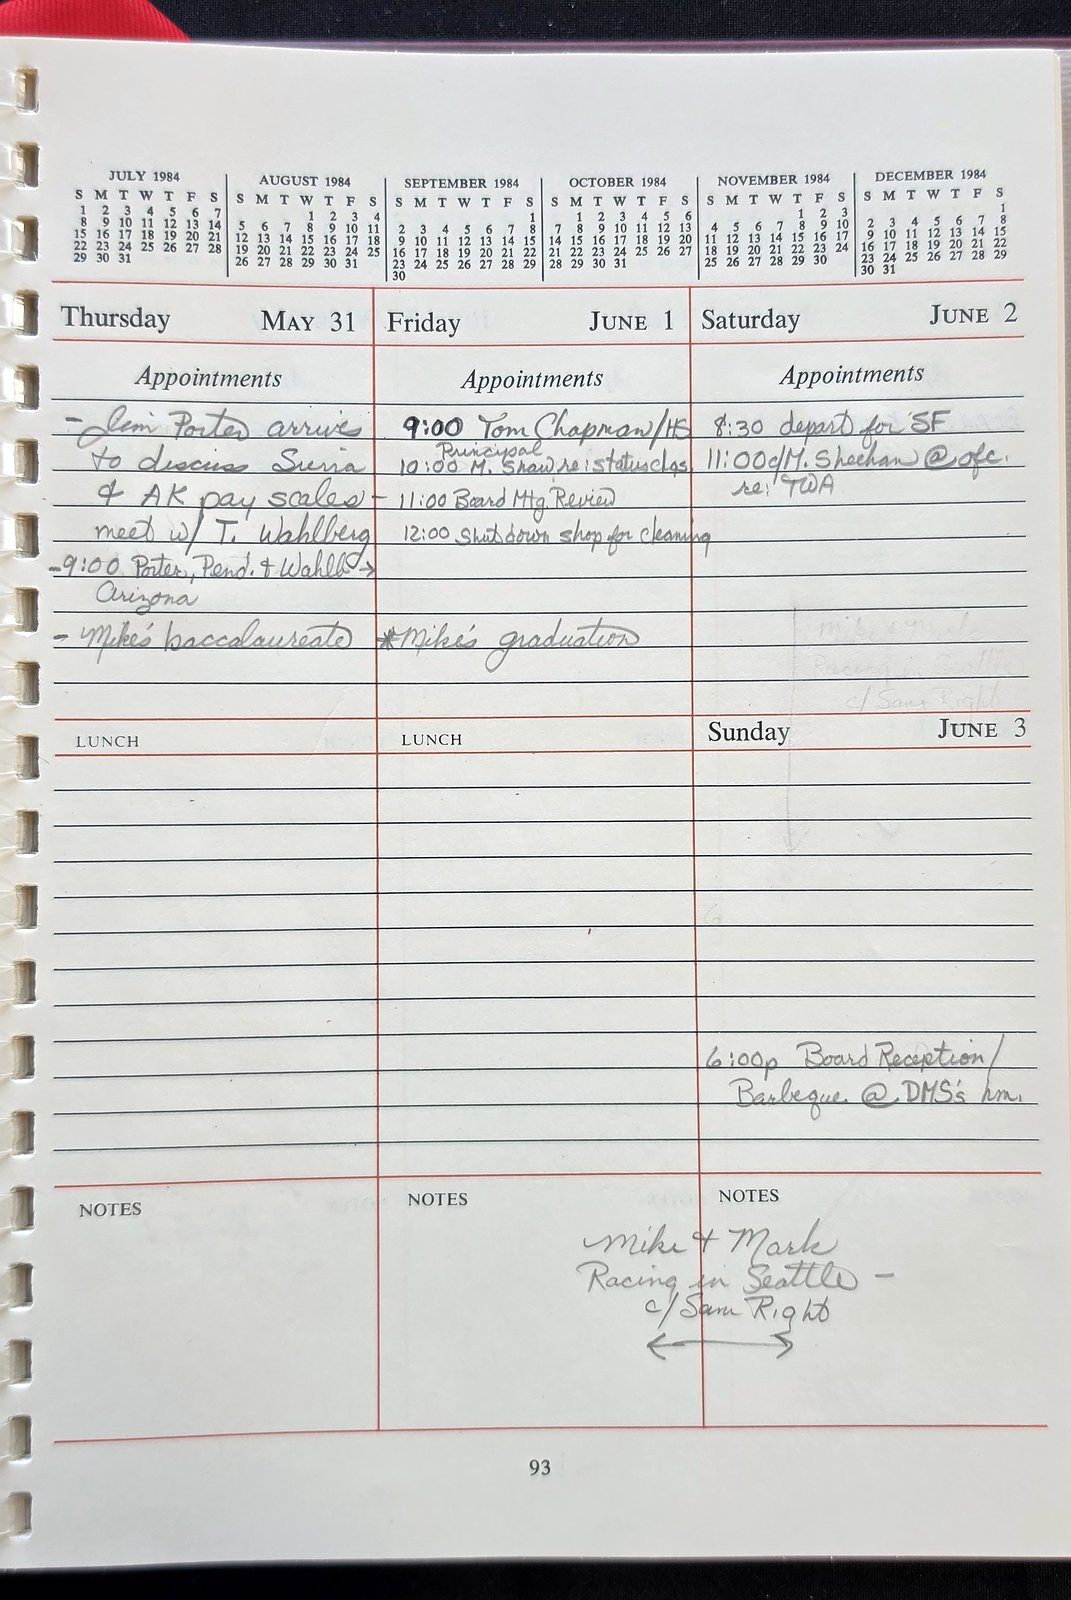 JULY 1984
S M T W T F S
1 2 3 4 5 6 7
8 9 10 11 12 13 14
15 16 17 18 19 20 21
22 23 24 25 26 27 28
29 30 31
AUGUST 1984
S M T W T F S
1 2 3 4
5 6 7 8 9 10 11
12 13 14 15 16 17 18
19 20 21 22 23 24 25
26 27 28 29 30 31
SEPTEMBER 1984
S M T W T F S
1
2 3 4 5 6 7 8
9 10 11 12 13 14 15
16 17 18 19 20 21 22
23 24 25 26 27 28 29
30
OCTOBER 1984
S M T W T F S
1 2 3 4 5 6
7 8 9 10 11 12 13
14 15 16 17 18 19 20
21 22 23 24 25 26 27
28 29 30 31
NOVEMBER 1984
S M T W T F S
1 2 3
4 5 6 7 8 9 10
11 12 13 14 15 16 17
18 19 20 21 22 23 24
25 26 27 28 29 30
DECEMBER 1984
S M T W T F S
1
2 3 4 5 6 7 8
9 10 11 12 13 14 15
16 17 18 19 20 21 22
23 24 25 26 27 28 29
30 31
Thursday MAY 31
Appointments
- Jim Porter arrives
to discuss Sierra
& AK pay scales -
meet w/ T. Wahlberg
-9:00 Porter, Pend. & Wahlb →
Arizona
- Mike's baccalaureate
LUNCH
NOTES
Friday JUNE 1
Appointments
9:00 Tom Chapman/HS
Principal
10:00 M. Shaw re: status chgs.
11:00 Board Mtg. Review
12:00 Shut down shop for cleaning
*Mike's graduation
LUNCH
NOTES
Saturday JUNE 2
Appointments
8:30 depart for SF
11:00 c/M. Sheehan @ ofc.
re: TWA
Racing in Seattle
c/ Sam Right
Sunday JUNE 3
6:00p Board Reception/
Barbeque @ DMS's hm.
NOTES
Mike & Mark
Racing in Seattle -
c/ Sam Right
93